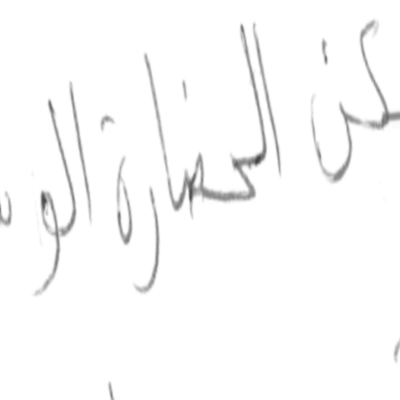 عن الحضارة الو